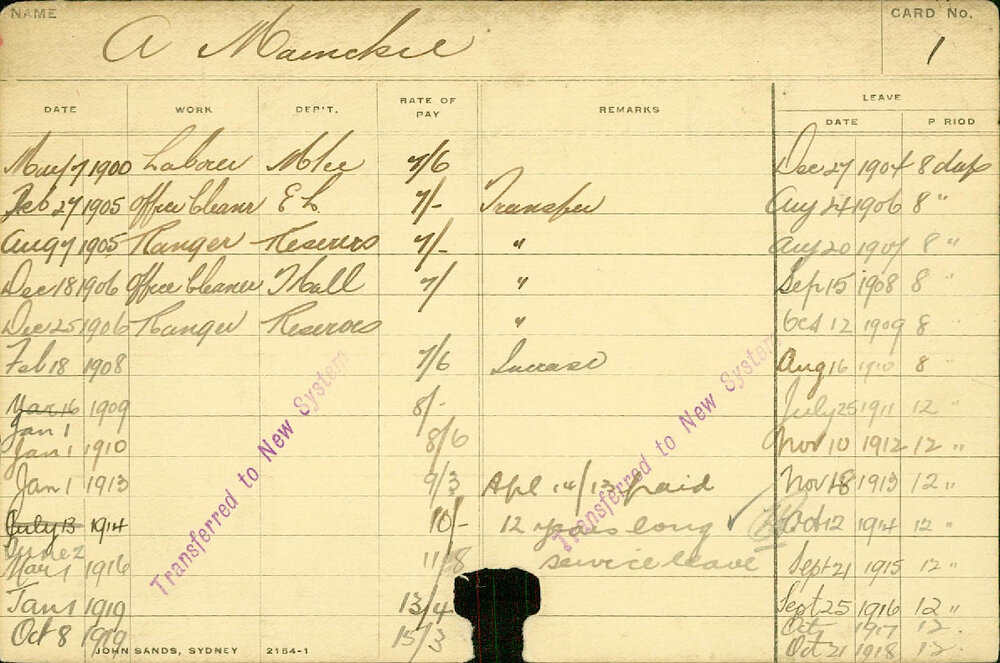 NAME
CARD No.
A Mamckie
1
DATE WORK DEP'T. RATE OF PAY REMARKS LEAVE
DATE P RIOD
May 7 1900 Laborer 7/6 Dec 27 1904 8 days
Feb 27 1905 Office Cleaner E L. 7/- Transfer Aug 24 1906 8 "
Aug 7 1905 Ranger Reserves 7/- " Aug 20 1907 8 "
Dec 18 1906 Office Cleaner T Hall 7/ " Sep 15 1908 8
Dec 25 1906 Ranger Reserves " Oct 12 1909 8
Feb 18 1908 7/6 Increase Aug 16 1910 8
Mar 16 1909 8/- July 25 1911 12 "
Jan 1
Jan 1 1910 8/6 Nov 10 1912 12 "
Jan 1 1913 9/3 Apl 14/13 paid Nov 18 1913 12 "
July 13 1914 10/- 12 years long Oct 12 1914 12 "
June 2
Mar 1 1916 11/8 service leave Sept 21 1915 12 "
Jan 1 1919 13/4 Sept 25 1916 12 "
Oct 1917 12.
Oct 8 1919 15/3 Oct 21 1918 12.
Transferred to New System
Transferred to New System
JOHN SANDS, SYDNEY 2154-1